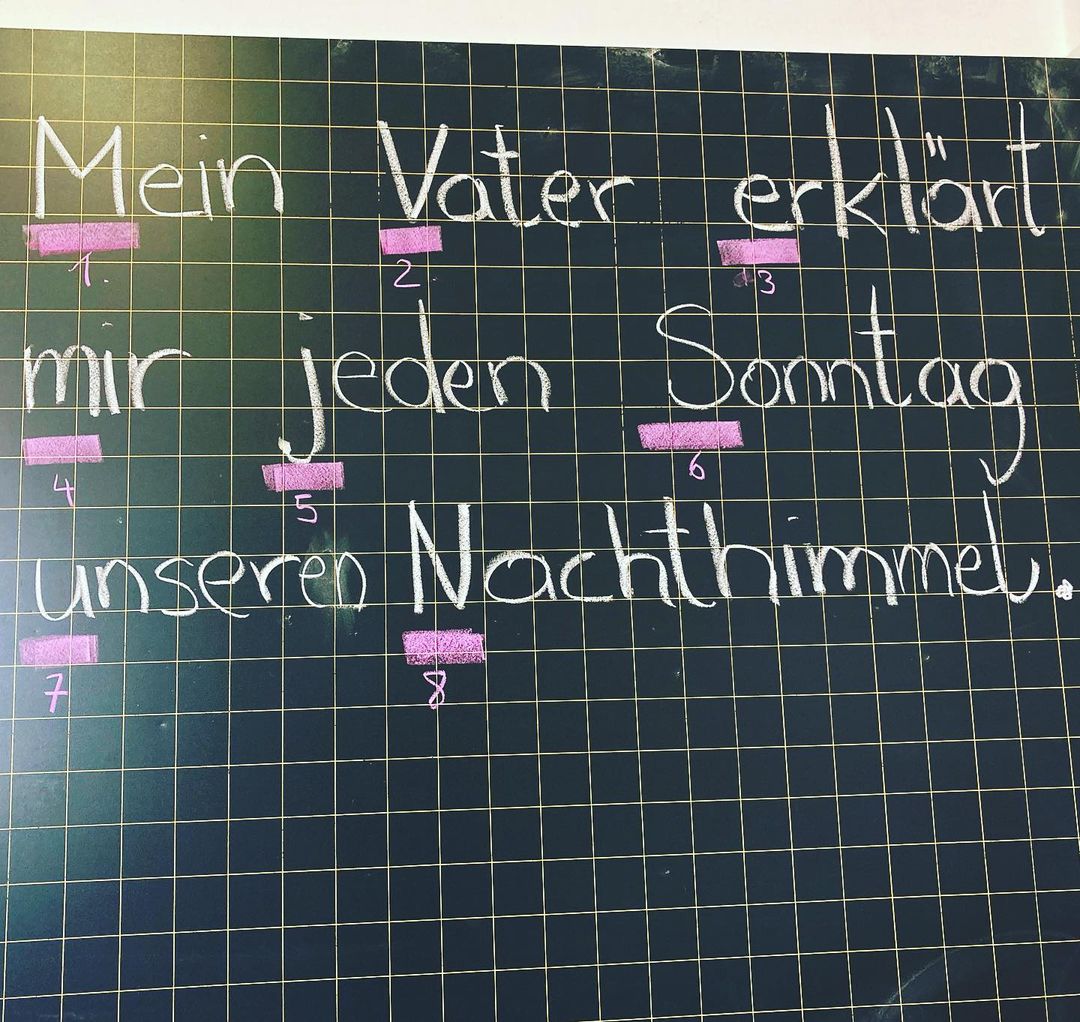 Mein Vater erklärt
1. 2. 3
mir jeden Sonntag
4 5 6
unseren Nachthimmel.
7 8